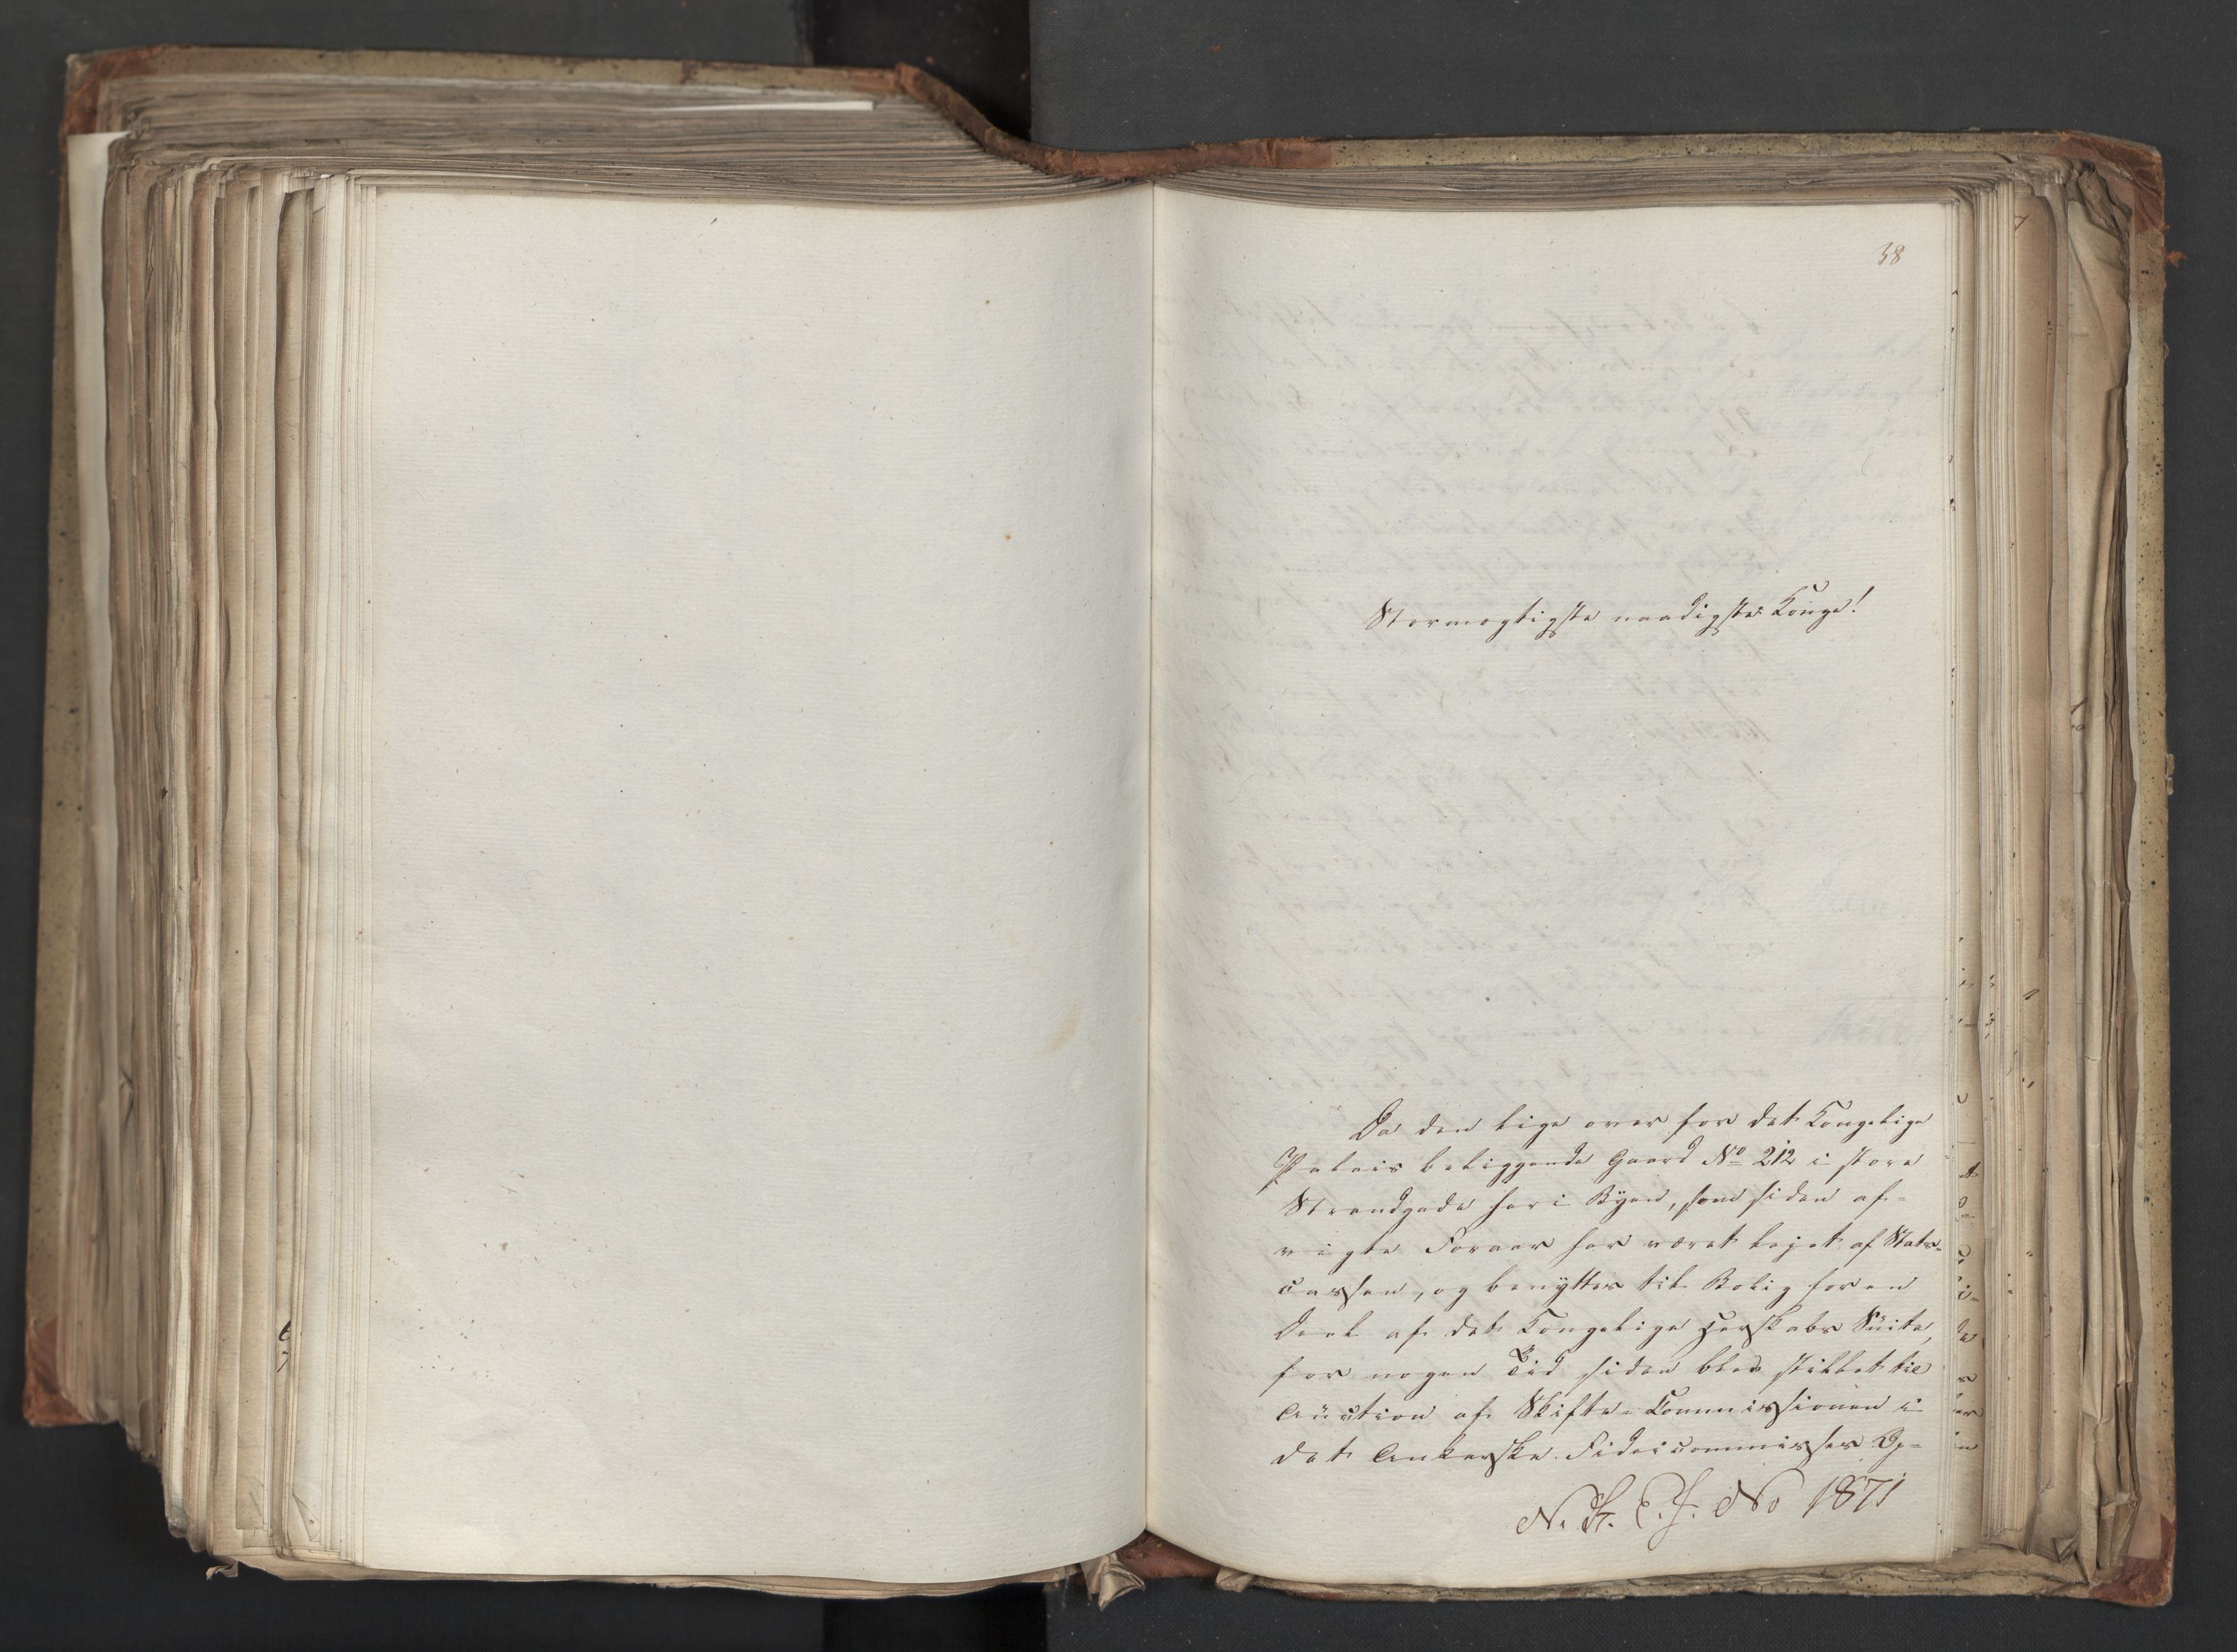 38
Stormægtigste naadigste Konge!
Da den lige over for det Kongelige
Palais beliggende Gaard No 212 i store
Strandgade her i Byen, som siden af-
vigte Foraar har været lejet af Stats-
Cassen, og benyttes til Bolig for en
Deel af det Kongelige Herskabs Suite,
for nogen Tid siden blev stillet til
Auction af Skifte-Commissionen i
det Ankerske Fideicommisses Op-
N. K. C. J. No 1871